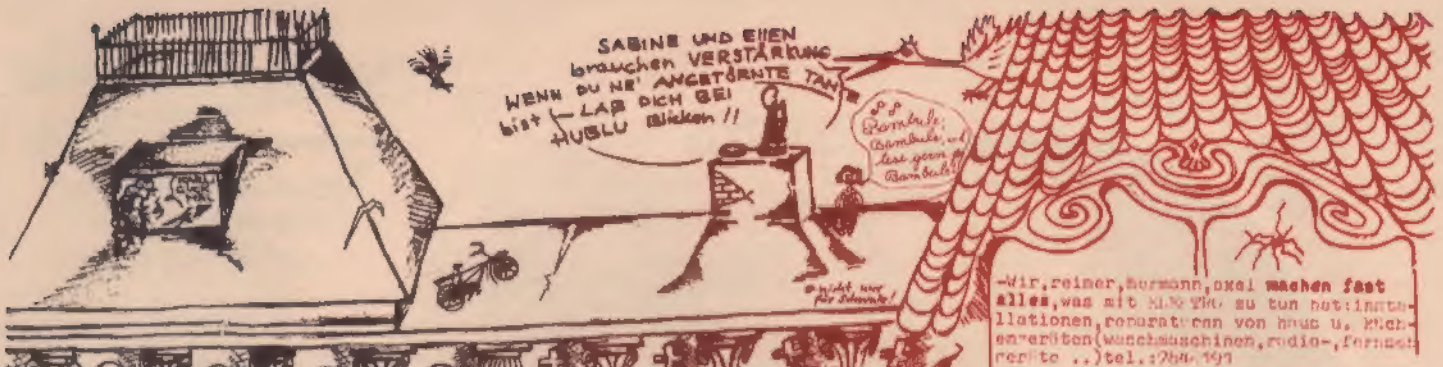 SABINE UND ELLEN
brauchen VERSTÄRKUNG
WENN DU NE' ANGETÖRNTE TANTE
bist – LAß DICH BEI
HUBLU Blicken !!
Bambule,
Bambule, ich
lese gern
Bambule
nicht nur
für Schwule!
-Wir, reiner, hermann, axel machen fast
alles, was mit zu tun hat: insta-
llationen, reparaturen von haus u. küch-
engeräten (waschmaschinen, radio-, fernseh
geräte ..) tel.: